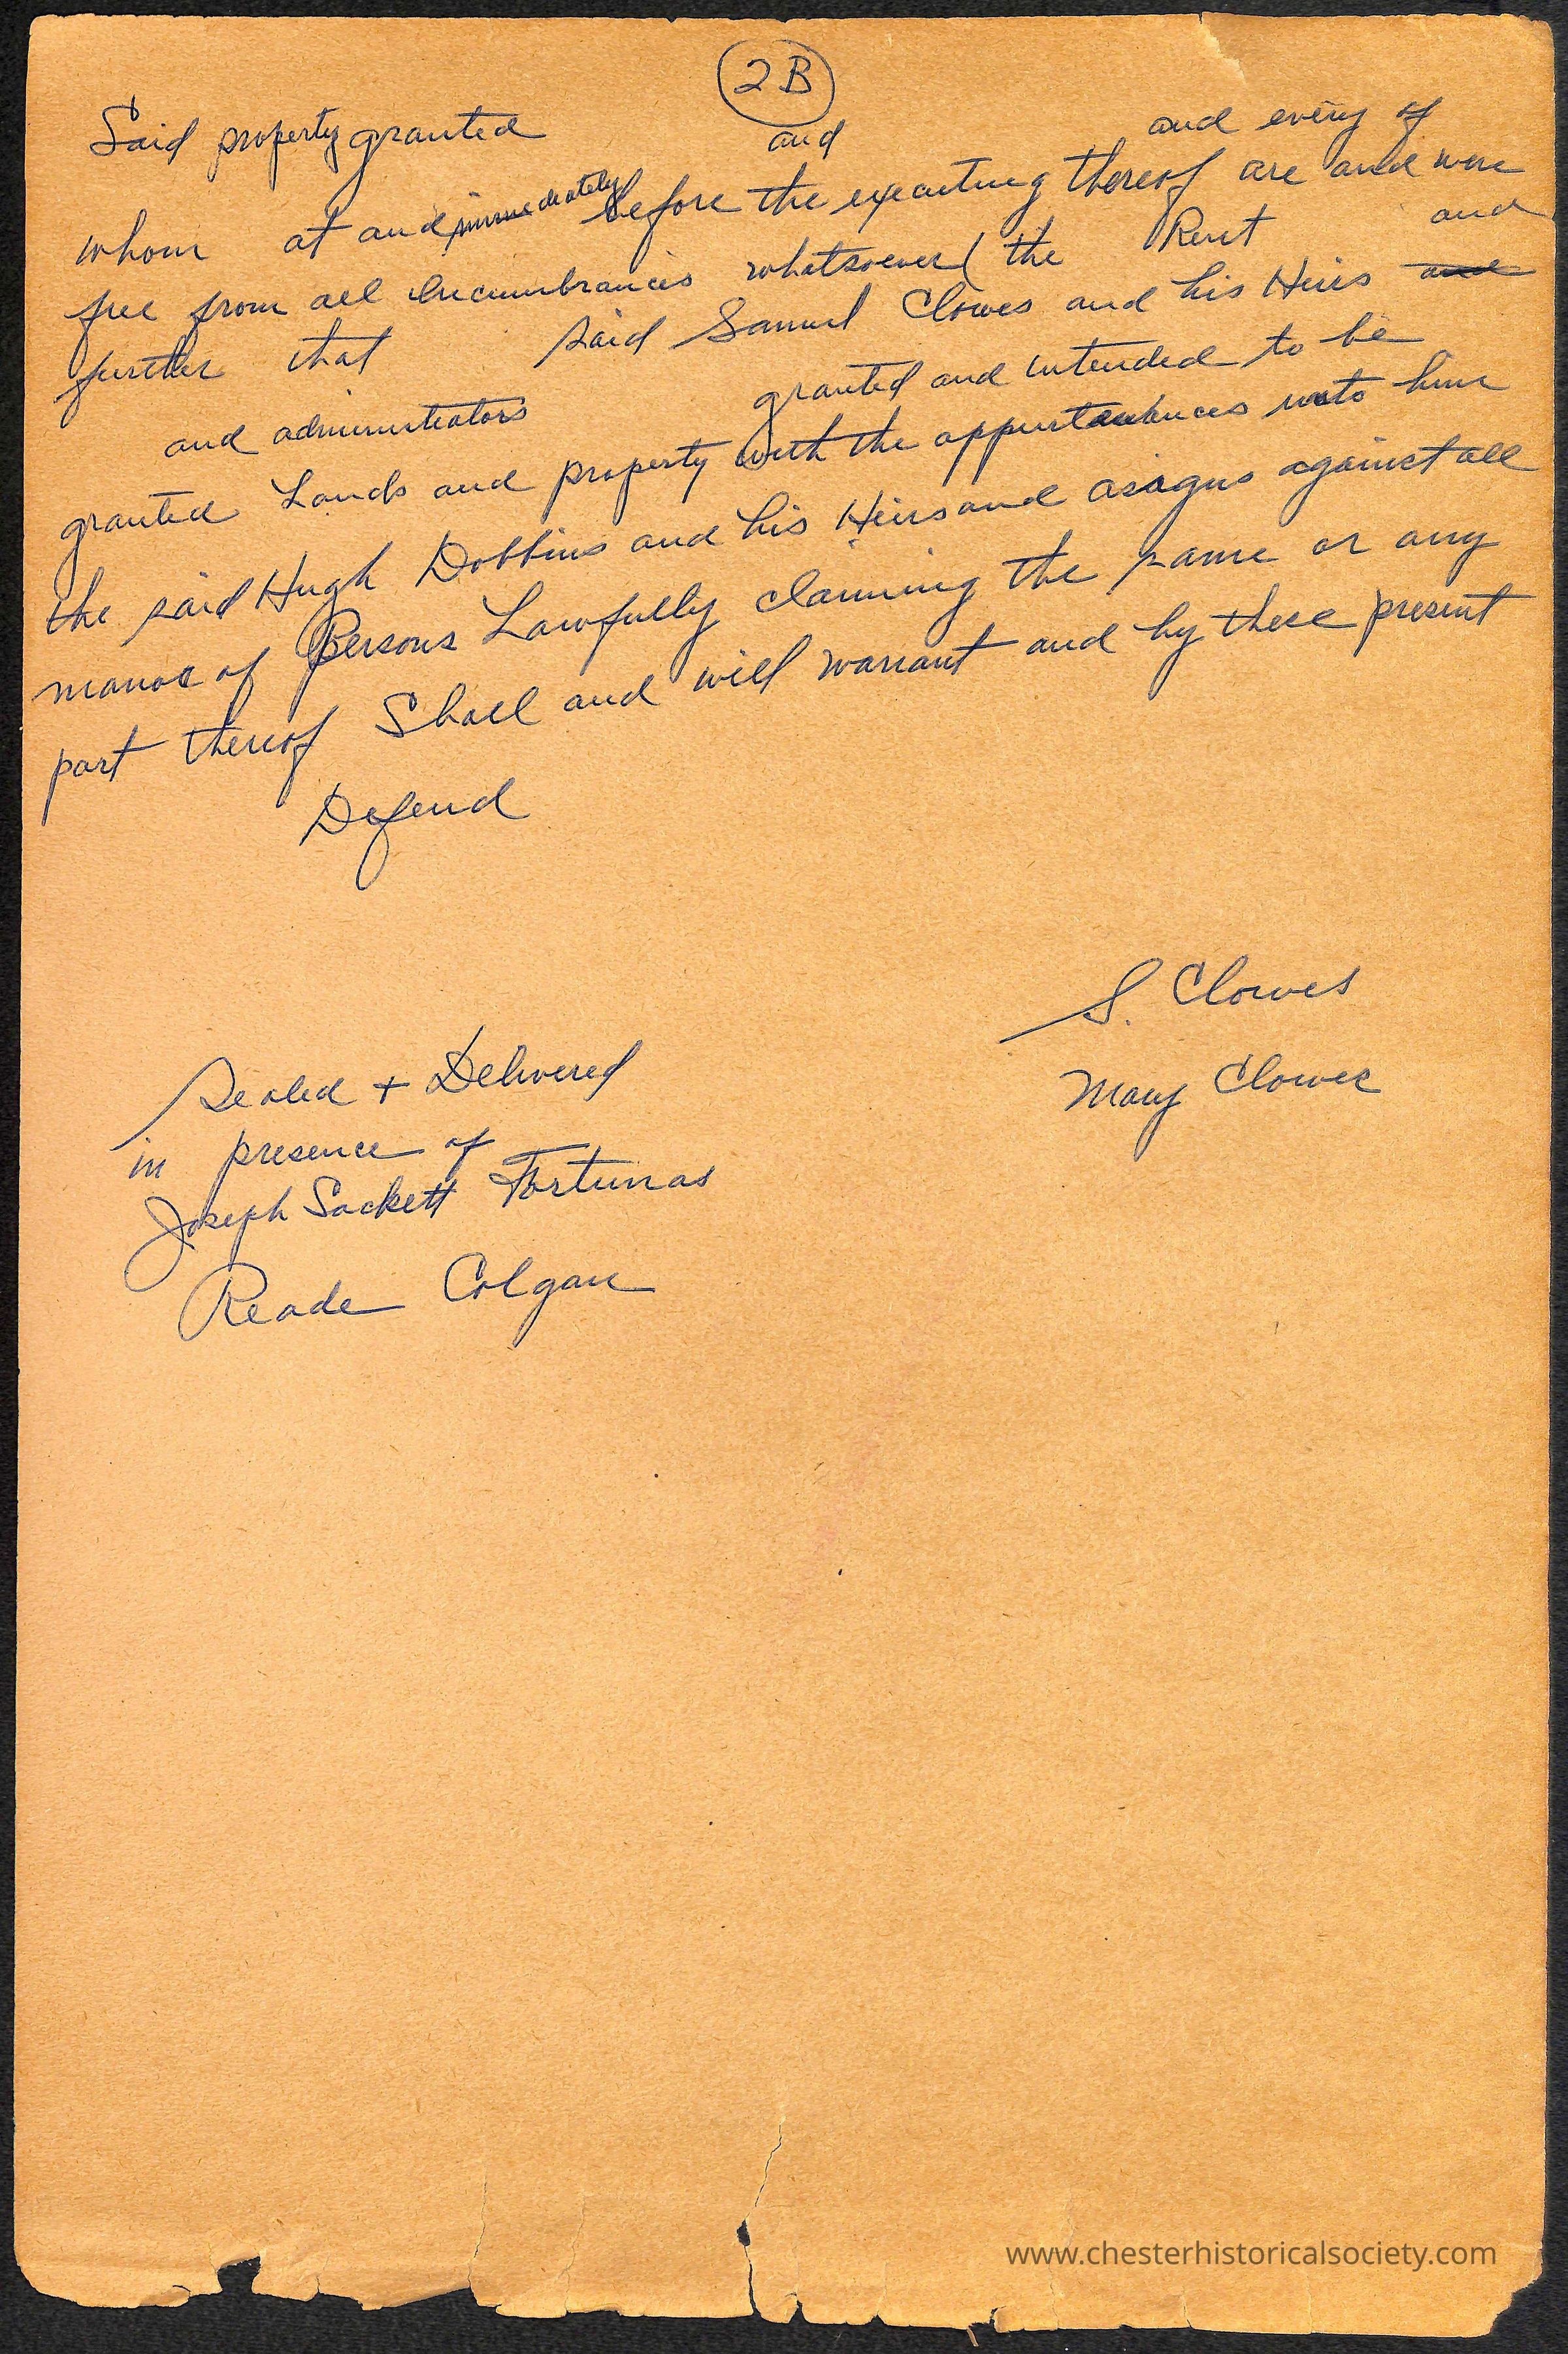 2B
Said property granted and and every of
whom at and immediately before the executing thereof are and were
free from all Incumbrances whatsoever ( the Rent and
further that said Samuel Clowes and his Heirs and
and administrators granted and intended to be
granted Lands and property with the appurtenances unto him
the said Hugh Dobbins and his Heirs and assigns against all
manor of Persons Lawfully claiming the same or any
part thereof Shall and will warrant and by these present
Defend
S. Clowes
Mary Clowes
Sealed + Delivered
in presence of
Joseph Sackett Fortunas
Reade Colgan
www.chesterhistoricalsociety.com